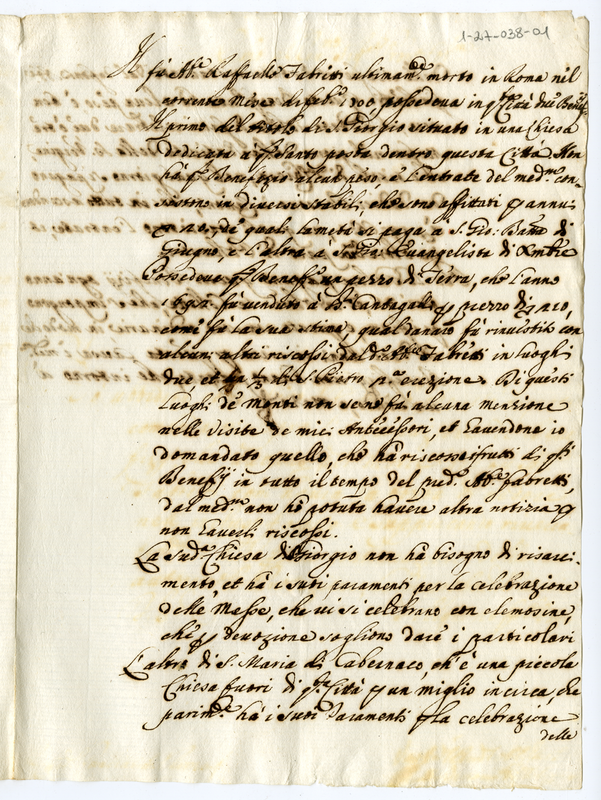 1-27-038-01
Il
fù Ab.e Raffaelle Fabretti ultimam.te morto in Roma nel
corrente mese di feb.o 1700 possedeva in q.ta Città due Benefizj
Il primo del titolo di S. Giorgio situato in una Chiesa
dedicata a q.to Santo posta dentro questa Città. Non
hà q.to Benefizio alcun peso e l'entrate del med.mo con-
sistono in diversi stabili, che sono affittati p annui
de quali la metà si paga à S. Gio: Batta di
Giugno, e l'altra à S. Gio: Evangelista di Xmbre
Possedeva q.to Benef.o un pezzo di Terra, che l'anno
fù venduto à Cantagalli p prezzo di
come fà la sua stima, qual danaro fù rinvestito con
alcuni altri riscossi dal d.o Ab.e Fabretti in luoghi
due, et di S. Pietro p.a erezione. Di questi
Luoghi de Monti non se ne fà alcuna menzione
nelle Visite de miei Antecessori, et havendone io
domandato quello, che hà riscosso i frutti di q.ti
Benefizj in tutto il tempo del pred.o Ab.e Fabretti,
dal med.mo non hò potuta havere altra notizia p
non haverli riscossi.
La sud.a Chiesa di S. Giorgio non hà bisogno di risarci-
mento, et hà i suoi paramenti per la celebrazione
delle Messe, che vi si celebrano con elemosine,
che p devozione sogliono dare i particolari
L'altro di S. Maria di Cabernaco, ch'è una piccola
Chiesa fuori di q.ta Città p un miglio in circa, che
parim.te hà i suoi Paramenti p la celebrazione
delle